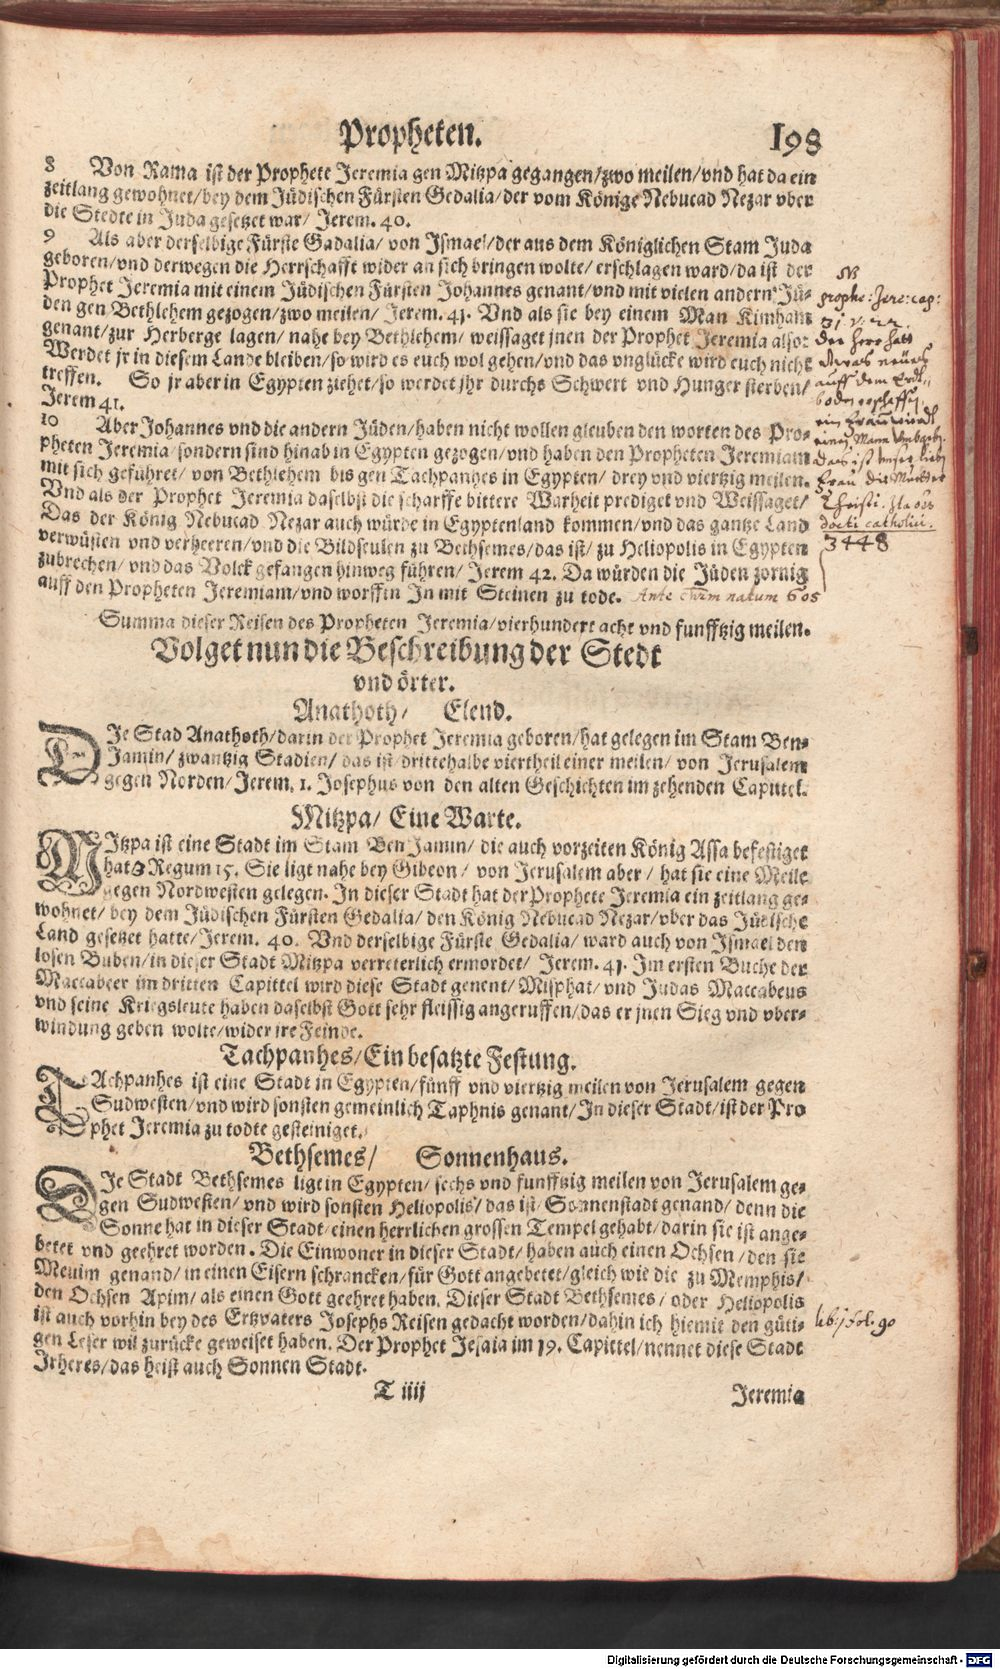 Propheten. 198
8 Von Rama ist der Prophete Jeremia gen Mitzpa gegangen/zwo meilen/vnd hat da ein
zeitlang gewohnet/bey dem Jüdischen Fürsten Gedalia/der vom Könige Nebucad Nezar vber
die Stedte in Juda gesetzet war/ Jerem. 40.
9 Als aber derselbige Fürste Gadalia/ von Ismael/der aus dem Königlichen Stam Juda
geboren/vnd derwegen die Herrschafft wider an sich bringen wolte/ erschlagen ward/da ist der
Prophet Jeremia mit einem Jüdischen Fürsten Johannes genant/vnd mit vielen andern Jü-
den gen Bethlehem gezogen/zwo meilen/ Jerem. 41. Vnd als sie bey einem Man Kimham
genant/zur Herberge lagen/ nahe bey Bethlehem/ weissaget jnen der Prophet Jeremia also:
Werdet jr in diesem Lande bleiben/so wird es euch wol gehen/vnd das vnglücke wird euch nicht
treffen. So jr aber in Egypten ziehet/so werdet jhr durchs Schwert vnd Hunger sterben/
Jerem 41.
10 Aber Johannes vnd die andern Jüden/haben nicht wollen gleuben den worten des Pro-
pheten Jeremia/sondern sind hinab in Egypten gezogen/vnd haben den Propheten Jeremiam
mit sich geführet/ von Bethlehem bis gen Tachpanhes in Egypten/ drey vnd viertzig meilen.
Vnd als der Prophet Jeremia daselbst die scharffe bittere Warheit prediget vnd Weissaget/
Das der König Nebucad Nezar auch würde in Egyptenland kommen/vnd das gantze Land
verwüsten vnd verheeren/vnd die Bildseulen zu Bethsemes/das ist/ zu Heliopolis in Egypten
zubrechen/ vnd das Volck gefangen hinweg führen/ Jerem 42. Da würden die Jüden zornig
auff den Propheten Jeremiam/vnd worffen In mit Steinen zu tode. Ante Chrm natum 605
Summa dieser Reisen des Propheten Jeremia/vierhundert acht vnd funfftzig meilen.
NB
prophe: Jere: cap:
31. v. 22.
der herr hatt
auff dem Erd
ein
das ist unser lieben
Frau die Mutter
Christi.
docti catholici.
3448
Volget nun die Beschreibung der Stedt
vnd örter.
Anathoth/ Elend.
DIe Stad Anathoth/darin der Prophet Jeremia geboren/hat gelegen im Stam Ben-
Jamin/ zwantzig Stadien/ das ist/drittehalbe viertheil einer meilen/ von Jerusalem
gegen Norden/Jerem. 1. Josephus von den alten Geschichten im zehenden Capittel.
Mitzpa/ Eine Warte.
MItzpa ist eine Stadt im Stam Ben Jamin/ die auch vorzeiten König Assa befestiget
hat 3 Regum 15. Sie ligt nahe bey Gibeon/ von Jerusalem aber/ hat sie eine Meile
gegen Nordwesten gelegen. In dieser Stadt hat der Prophete Jeremia ein zeitlang ge-
wohnet/ bey dem Jüdischen Fürsten Gedalia/ den König Nebucad Nezar/vber das Jüdische
Land gesetzet hatte/Jerem. 40. Vnd derselbige Fürste Gedalia/ ward auch von Ismael den
losen Buben/in dieser Stadt Mitzpa verreterlich ermordet/ Jerem. 41. Im ersten Buche der
Maccabeer im dritten Capittel wird diese Stadt genent/Misphat/ vnd Judas Maccabeus
vnd seine Kriegsleute haben daselbst Gott sehr fleissig angeruffen/das er jnen Sieg vnd vber-
windung geben wolte/wider jre Feinde.
Tachpanhes/Ein besatzte Festung.
TAchpanhes ist eine Stadt in Egypten/fünff vnd viertzig meilen von Jerusalem gegen
Sudwesten/vnd wird sonsten gemeinlich Taphnis genant/In dieser Stadt/ist der Pro
phet Jeremia zu todte gesteiniget.
Bethsemes/ Sonnenhaus.
DIe Stadt Bethsemes ligt in Egypten/ sechs vnd funfftzig meilen von Jerusalem ge-
gen Sudwesten/ vnd wird sonsten Heliopolis/ das ist/ Sonnenstadt genand/ denn die
Sonne hat in dieser Stadt/einen herrlichen grossen Tempel gehabt/darin sie ist ange-
betet vnd geehret worden. Die Einwoner in dieser Stadt/ haben auch einen Ochsen/den sie
Mevim genand/in einen Eisern schrancken/für Gott angebetet/gleich wie die zu Memphis/
den Ochsen Apim/ als einen Gott geehret haben. Dieser Stadt Bethsemes/ oder Heliopolis
ist auch vorhin bey des Ertzvaters Josephs Reisen gedacht worden/dahin ich hiemit den güti-
gen Leser wil zurücke geweiset haben. Der Prophet Jesaia im 19. Capittel/nennet diese Stadt
Irheres/das heist auch Sonnen Stadt.
lib: j fol. 90
T iiij Jeremia
Digitalisierung gefördert durch die Deutsche Forschungsgemeinschaft - DFG